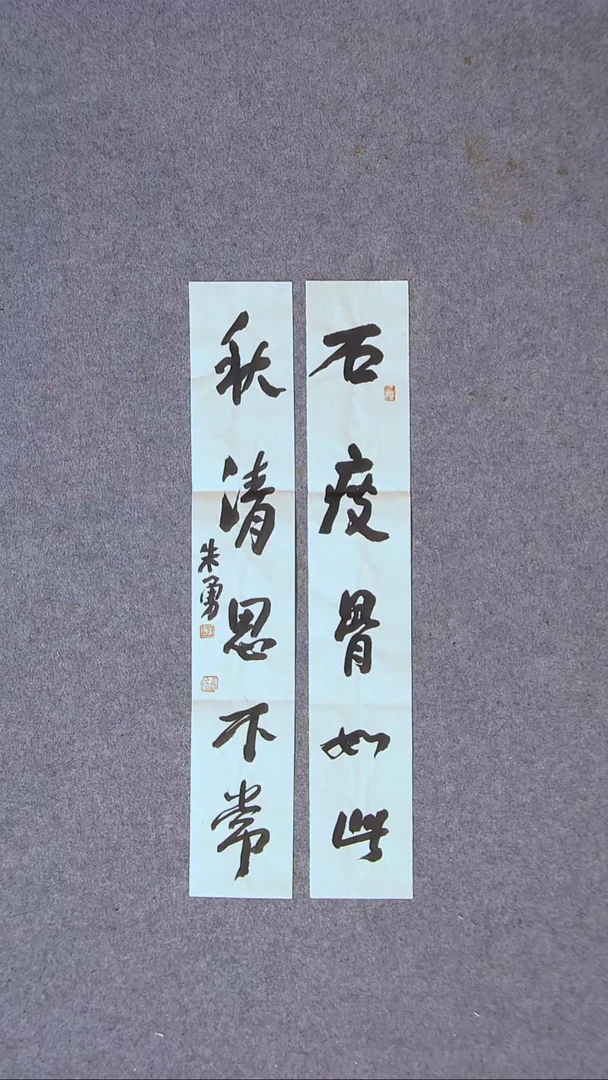 石瘦骨如此
秋清思不常
朱勇